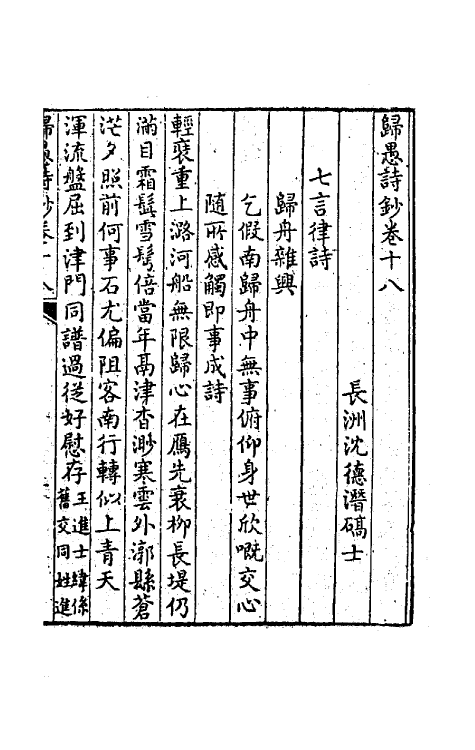 歸愚詩鈔卷十八
長洲沈德潛碻士
七言律詩
歸舟雜興
乞假南歸舟中無事俯仰身世欣嘅交心
隨所感觸即事成詩
輕裘重上潞河船無限歸心在鴈先衰柳長堤仍
滿目霜鬚雪鬢倍當年鬲津杳渺寒雲外漷縣蒼
茫夕照前何事石尤偏阻客南行轉似上青天
渾流盤屈到津門同譜過從好慰存王進士緯係舊交同姓進
歸愚詩鈔卷十八